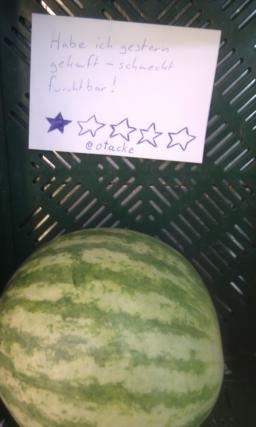 Habe ich gestern
gekauft - schmeckt
furchtbar!
@otacke